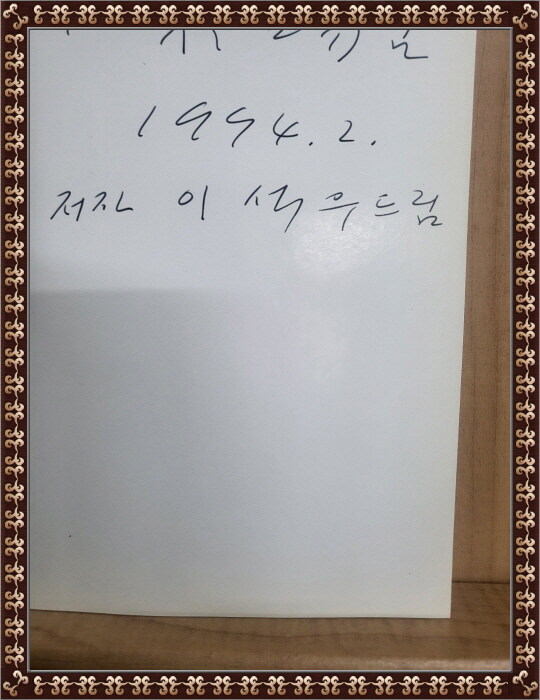 1994. 2.
저자 이 석 우 드림